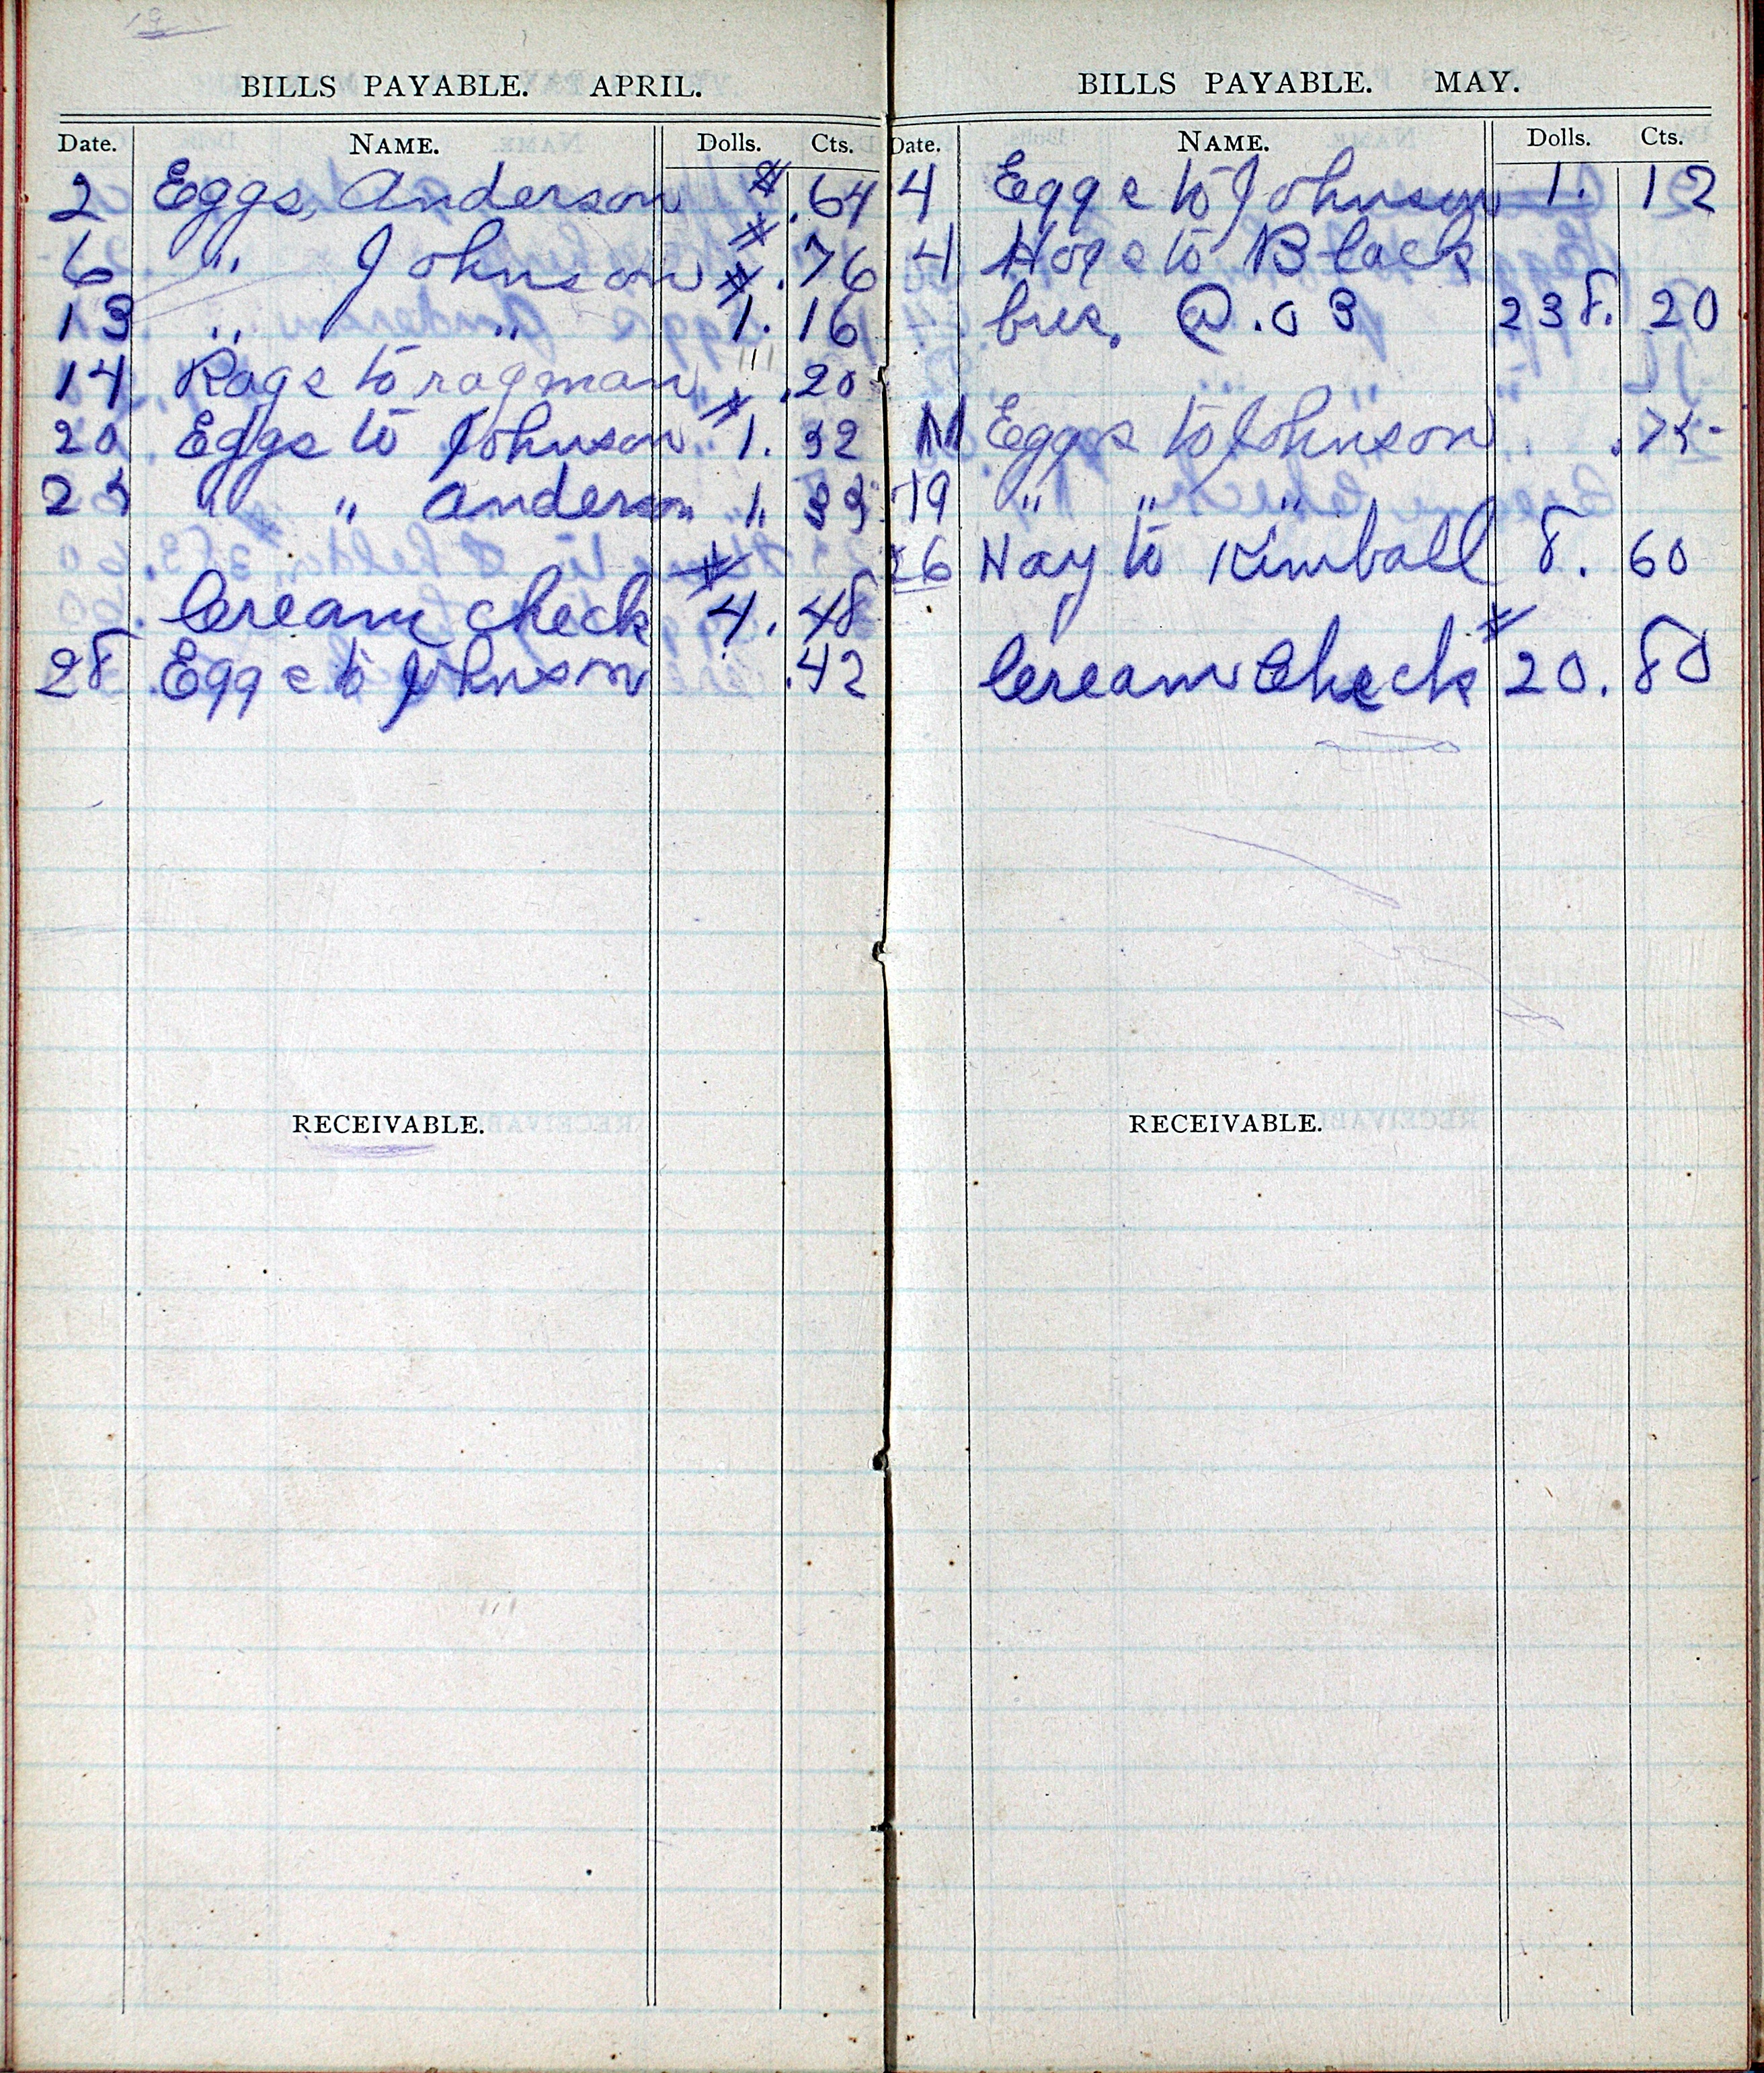 BILLS PAYABLE. APRIL.
Date. NAME. Dolls. Cts.
2 Eggs, Anderson $ .64
6 " Johnson $ .76
13 " " $ 1. 16
14 Rags to ragman .20
20 Eggs to Johnson $ 1. 32
" " Anderson 1. 33
Cream check $ 4. 48
28 Eggs to Johnson .42
RECEIVABLE.
BILLS PAYABLE. MAY.
Date. NAME. Dolls. Cts.
4 Eggs to Johnson 1. 12
4 Hogs to Black
@ .03 238. 20
Eggs to Johnson .75
19 " " "
26 Hay to Kimball 8. 60
Cream Check $ 20. 80
RECEIVABLE.